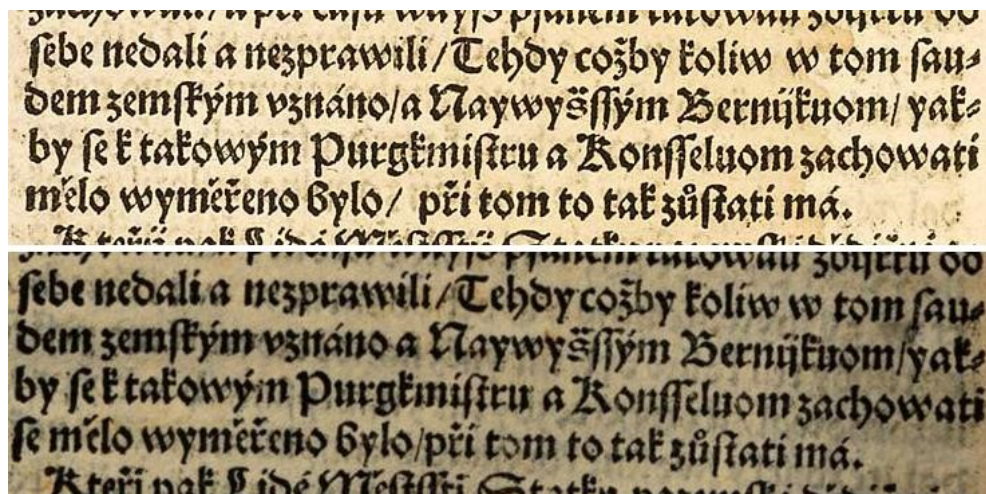 sebe nedali a nezprawili/Tehdy cožby koliw w tom sau⸗
dem zemským vznáno/a Naywyšſſým Bernijkuom/ yak⸗
by ſe k takowým Purgkmiſtru a Konſſeluom zachowati
mělo wyměřeno bylo/ při tom to tak zůſtati má.
ſebe nedali a nezprawili/Tehdy cožby koliw w tom ſau⸗
dem zemſkým vznáno a Naywyšſſým Bernijkuom/yak⸗
by ſe k takowým Purgkmiſtru a Konſſeluom zachowati
ſe mělo wyměřeno bylo/při tom to tak zůſtati má.
Kteři pak